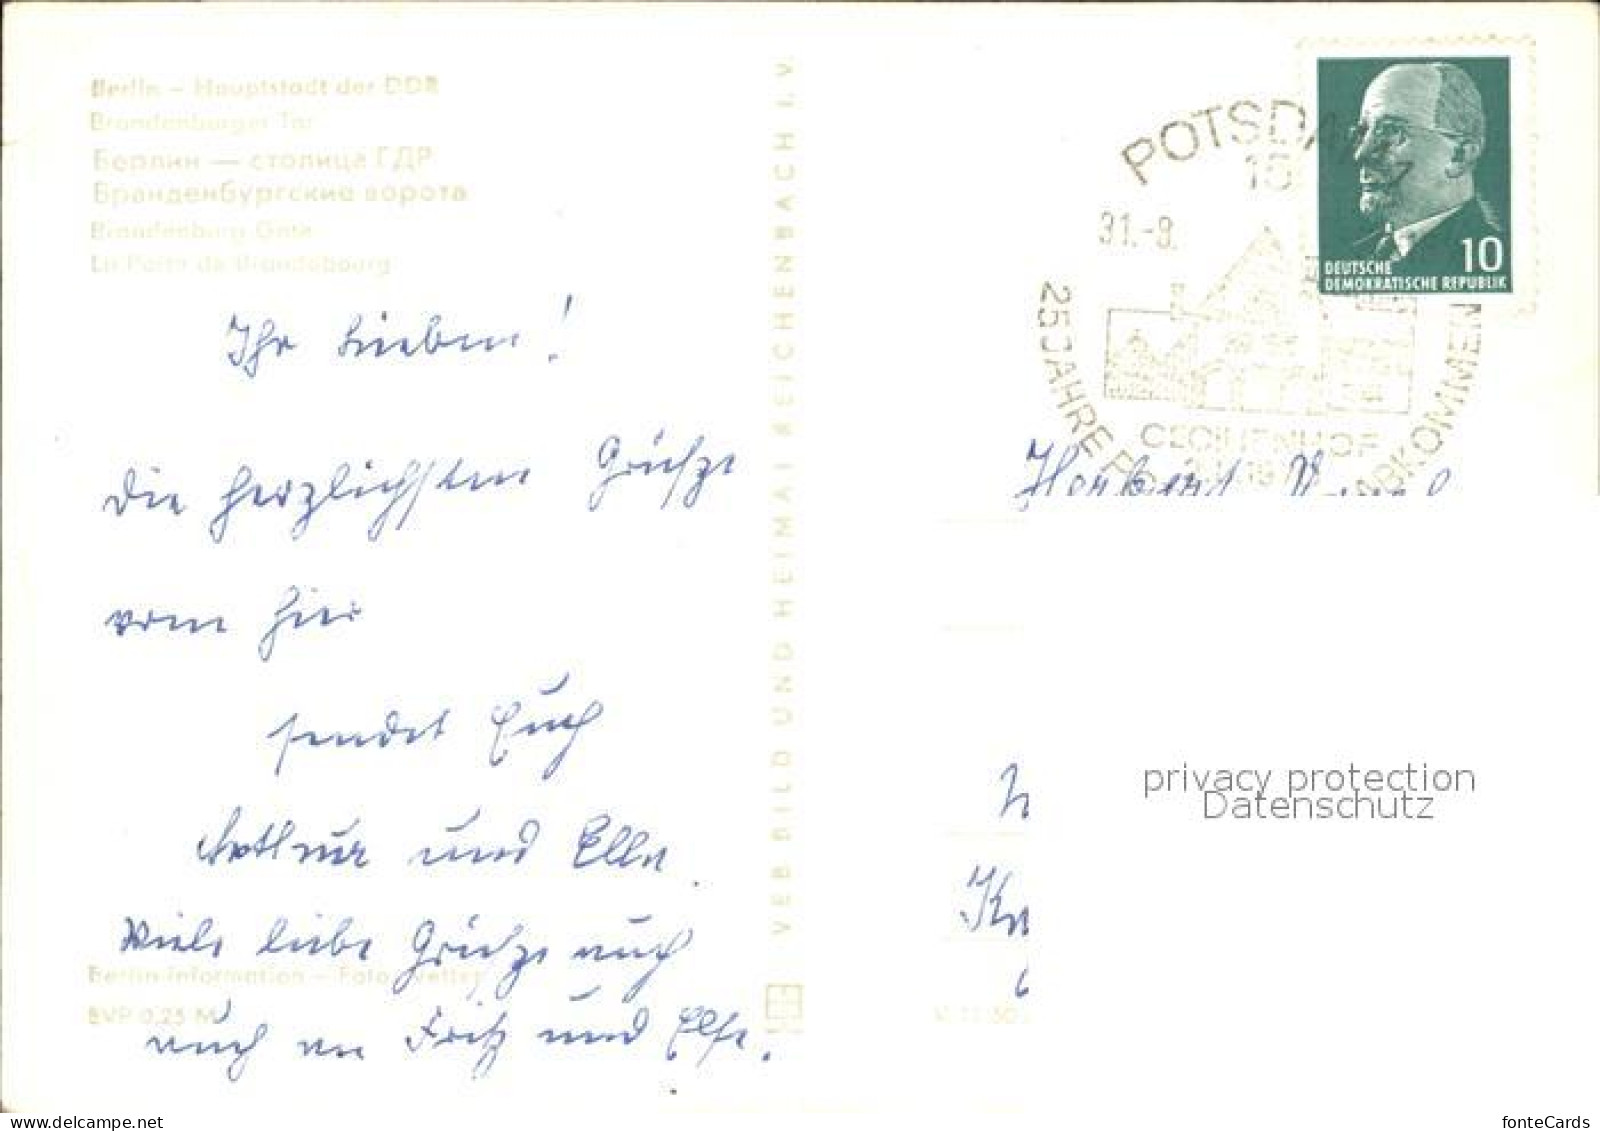 Berlin – Hauptstadt der DDR
Brandenburger Tor
Берлин — столица ГДР
Бранденбургские ворота
Brandenburg Gate
La Porte de Brandebourg
Ihr Lieben!
die herzlichsten Grüße
vom hier
sendet Euch
Arthur und Ella.
Viele liebe Grüße auch
auch an Fritz und Else.
Berlin-Information – Foto:
EVP 0,25 M
VEB BILD UND HEIMAT REICHENBACH I. V.
POTSDAM
15
31.-8.
25 JAHRE
ABKOMMEN
CECILIENHOF
DEUTSCHE
DEMOKRATISCHE REPUBLIK
10
Herbert
privacy protection
Datenschutz
www.ansichtskarten-center.de
fonteCards